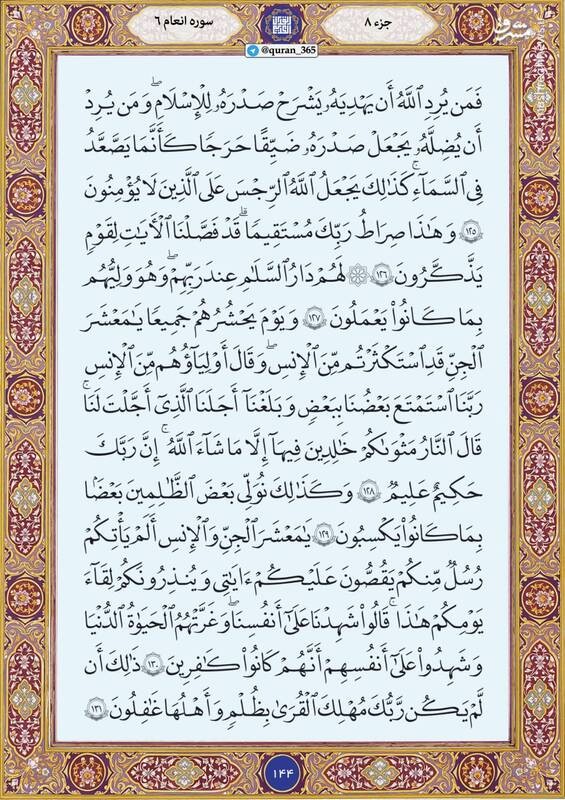 جزء ۸
سوره انعام ۶
@quran_365
مشرق
فَمَن يُرِدِ اللَّهُ أَن يَهْدِيَهُ يَشْرَحْ صَدْرَهُ لِلْإِسْلَامِ ۖ وَمَن يُرِدْ
أَن يُضِلَّهُ يَجْعَلْ صَدْرَهُ ضَيِّقًا حَرَجًا كَأَنَّمَا يَصَّعَّدُ
فِي السَّمَاءِ ۚ كَذَٰلِكَ يَجْعَلُ اللَّهُ الرِّجْسَ عَلَى الَّذِينَ لَا يُؤْمِنُونَ
۱۲۵ وَهَٰذَا صِرَاطُ رَبِّكَ مُسْتَقِيمًا ۗ قَدْ فَصَّلْنَا الْآيَاتِ لِقَوْمٍ
يَذَّكَّرُونَ ۱۲۶ ۞ لَهُمْ دَارُ السَّلَامِ عِندَ رَبِّهِمْ ۖ وَهُوَ وَلِيُّهُم
بِمَا كَانُوا يَعْمَلُونَ ۱۲۷ وَيَوْمَ يَحْشُرُهُمْ جَمِيعًا يَا مَعْشَرَ
الْجِنِّ قَدِ اسْتَكْثَرْتُم مِّنَ الْإِنسِ ۖ وَقَالَ أَوْلِيَاؤُهُم مِّنَ الْإِنسِ
رَبَّنَا اسْتَمْتَعَ بَعْضُنَا بِبَعْضٍ وَبَلَغْنَا أَجَلَنَا الَّذِي أَجَّلْتَ لَنَا ۚ
قَالَ النَّارُ مَثْوَاكُمْ خَالِدِينَ فِيهَا إِلَّا مَا شَاءَ اللَّهُ ۗ إِنَّ رَبَّكَ
حَكِيمٌ عَلِيمٌ ۱۲۸ وَكَذَٰلِكَ نُوَلِّي بَعْضَ الظَّالِمِينَ بَعْضًا
بِمَا كَانُوا يَكْسِبُونَ ۱۲۹ يَا مَعْشَرَ الْجِنِّ وَالْإِنسِ أَلَمْ يَأْتِكُمْ
رُسُلٌ مِّنكُمْ يَقُصُّونَ عَلَيْكُمْ ءَايَاتِي وَيُنذِرُونَكُمْ لِقَاءَ
يَوْمِكُمْ هَٰذَا ۚ قَالُوا شَهِدْنَا عَلَىٰ أَنفُسِنَا ۖ وَغَرَّتْهُمُ الْحَيَوٰةُ الدُّنْيَا
وَشَهِدُوا عَلَىٰ أَنفُسِهِمْ أَنَّهُمْ كَانُوا كَافِرِينَ ۱۳۰ ذَٰلِكَ أَن
لَّمْ يَكُن رَّبُّكَ مُهْلِكَ الْقُرَىٰ بِظُلْمٍ وَأَهْلُهَا غَافِلُونَ ۱۳۱
۱۴۴